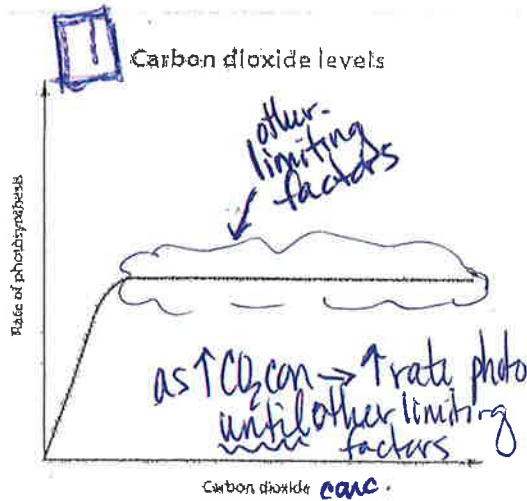 1
Carbon dioxide levels
other
limiting
factors
Rate of photosynthesis
as ↑ CO₂ con → ↑ rate photo
until other limiting
factors
Carbon dioxide conc.